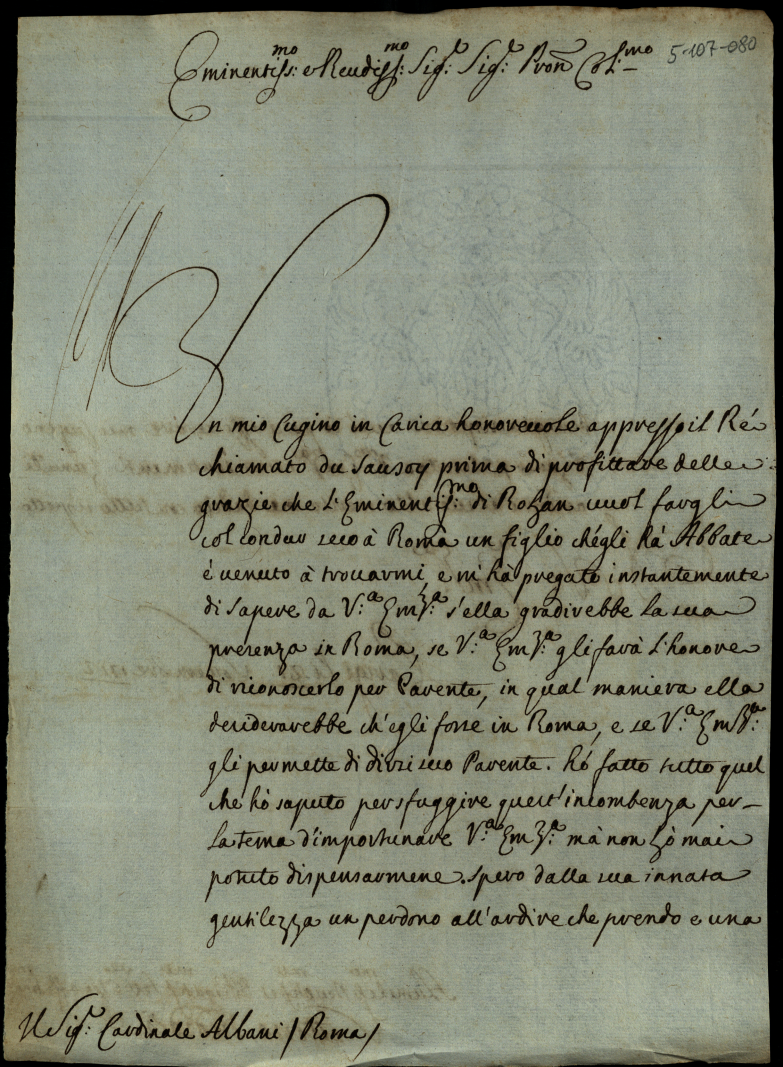 5-107-080
Eminentiss:mo e Reudiss:mo Sigr: Sigr: Pron Col:mo
Un mio Cugino in Carica honoreuole appresso il Ré
chiamato du Sausoy prima di profittare delle
grazie che l'Eminentis:mo di Rohan uuol fargli
col condur seco à Roma un figlio ch'égli há Abbate
é uenuto à trouarmi, e m'há pregato instantemente
di sapere da V:a Emza: s'ella gradirebbe la sua
presenza in Roma, se V:a Emza: gli fará l'honore
di riconoscerlo per Parente, in qual maniera ella
desiderarebbe ch'egli fosse in Roma, e se V:a Emza:
gli permette di dirsi suo Parente. hó fatto tutto quel
che hó saputo per sfuggire quest'incombenza per
la tema d'importunare V:a Emza: mà non hò mai
potuto dispensarmene. spero dalla sua innata
gentilezza un perdono all'ardire che prendo e una
Il Sigr: Cardinale Albani / Roma /